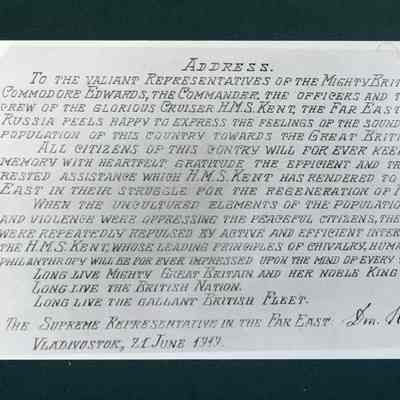 ADDRESS.
TO THE VALIANT REPRESENTATIVES OF THE MIGHTY BRIT
COMMODORE EDWARDS, THE COMMANDER, THE OFFICERS AND T
CREW OF THE GLORIOUS CRUISER H.M.S. KENT, THE FAR EAST
RUSSIA FEELS HAPPY TO EXPRESS THE FEELINGS OF THE SOUND
POPULATION OF THIS COUNTRY TOWARDS THE GREAT BRIT
ALL CITIZENS OF THIS CONTRY WILL FOR EVER KEEP
MEMORY WITH HEARTFELT GRATITUDE THE EFFICIENT AND
RESTED ASSISTANCE WHICH H.M.S. KENT HAS RENDERED TO
EAST IN THEIR STRUGGLE FOR THE REGENERATION OF
WHEN THE UNCULTURED ELEMENTS OF THE POPULATION
AND VIOLENCE WERE OPPRESSING THE PEACEFUL CITIZENS, THE
WERE REPEATEDLY REPULSED BY ACTIVE AND EFFICIENT INTER
THE H.M.S. KENT, WHOSE LEADING PRINCIPLES OF CHIVALRY, HUMA
PHILANTHROPY WILL BE FOR EVER IMPRESSED UPON THE MIND OF EVERY
LONG LIVE MIGHTY GREAT BRITAIN AND HER NOBLE KING
LONG LIVE THE BRITISH NATION.
LONG LIVE THE GALLANT BRITISH FLEET.
THE SUPREME REPRESENTATIVE IN THE FAR EAST
VLADIVOSTOK, 21 JUNE 1919.